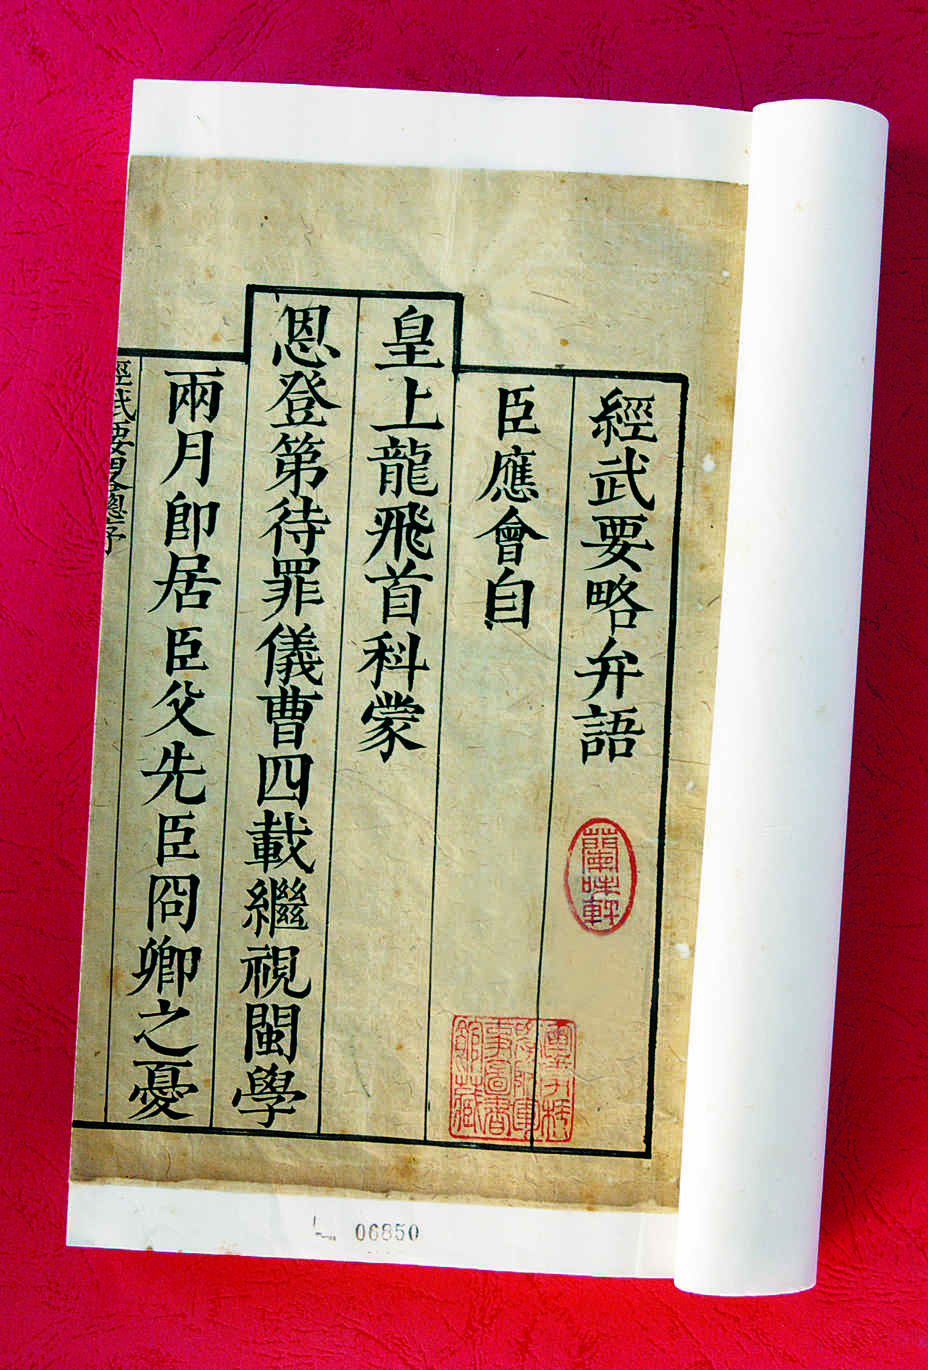 經武要略弁語
臣應會自
皇上龍飛首科蒙
恩登第待罪儀曹四載繼視閩學
兩月卽居臣父先臣冏卿之憂
經武要略總序
蘭味軒
06850